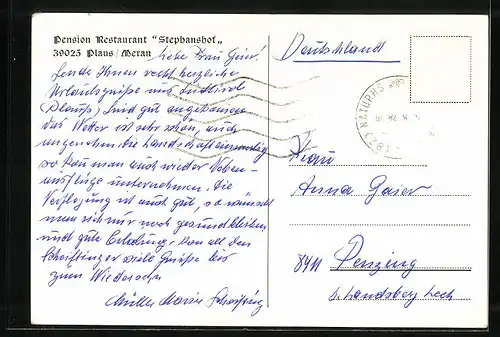 Pension Restaurant "Stephanshof„
39025 Plaus/Meran
Liebe Frau Gaier!
Sende Ihnen recht herzliche
Urlaubsgrüße aus Südtirol
(Plaus), sind gut angekommen
das Wetter ist sehr schön auch
angenehm die Landschaft einmalig
so kann man auch wieder Neben-
ausflüge unternehmen. Die
Verflegung ist auch gut, so wünscht
man sich nur noch gesund bleiben
und gute Erholung, von all den
viele Grüße bis
zum Wiedersehn
Müller Maria
Deutschland
NATURNS
Frau
Anna Gaier
8911 Penzing
b. Landsberg Lech